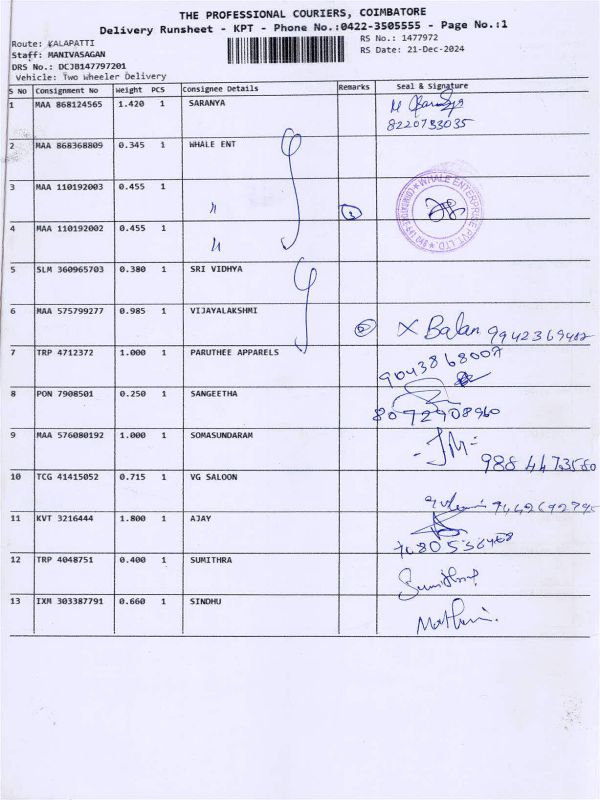 THE PROFESSIONAL COURIERS, COIMBATORE
Delivery Runsheet - KPT - Phone No.:0422-3505555 - Page No.:1
Route: KALAPATTI
RS No.: 1477972
Staff: MANIVASAGAN
RS Date: 21-Dec-2024
DRS No.: DCJB147797201
Vehicle: Two Wheeler Delivery
S No Consignment No Weight PCS Consignee Details Remarks Seal & Signature
1 MAA 868124565 1.420 1 SARANYA
8220733035
2 MAA 868368809 0.345 1 WHALE ENT
3 MAA 110192003 0.455 1 "
WHALE ENTERPRISE PVT. LTD.
4 MAA 110192002 0.455 1 "
5 SLM 360965703 0.380 1 SRI VIDHYA
6 MAA 575799277 0.985 1 VIJAYALAKSHMI
② X Balan 9942369402
7 TRP 4712372 1.000 1 PARUTHEE APPARELS
9043868007
8 PON 7908501 0.250 1 SANGEETHA
8072908960
9 MAA 576080192 1.000 1 SOMASUNDARAM
9884473580
10 TCG 41415052 0.715 1 VG SALOON
11 KVT 3216444 1.800 1 AJAY
12 TRP 4048751 0.400 1 SUMITHRA
13 IXM 303387791 0.660 1 SINDHU